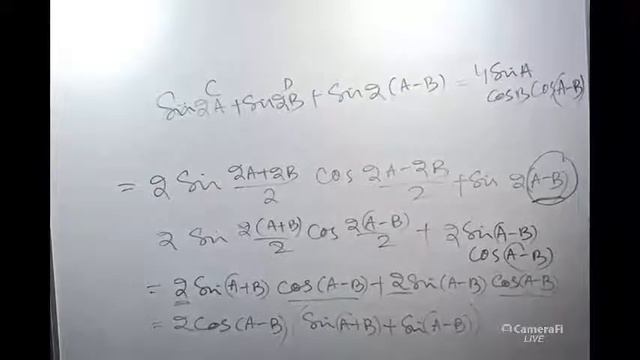 C D
Sin2A + Sin2B + Sin2(A-B) = 4SinA
CosB Cos(A-B)
= 2 Sin 2A+2B/2 Cos 2A-2B/2 + Sin 2(A-B)
2 Sin 2(A+B)/2 Cos 2(A-B)/2 + 2Sin(A-B)
Cos(A-B)
= 2Sin(A+B) Cos(A-B) + 2Sin(A-B) Cos(A-B)
= 2Cos(A-B) (Sin(A+B) + Sin(A-B))
CameraFi
LIVE